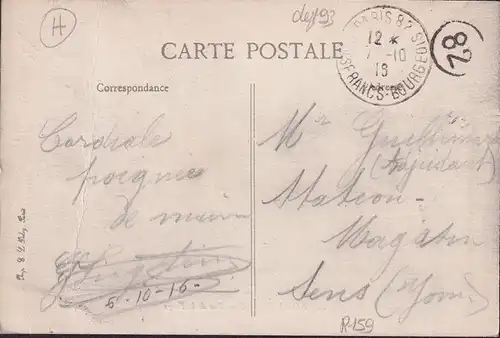 H
dep 93
CARTE POSTALE
PARIS 82
12 *
7 -10
16
FRANCS-BOURGEOIS
28
Correspondance
Adresse
Cordiale
poignée
de main
6-10-16-
Mr
(Adjudant)
Station-
Magasin
Sens (Yonne)
R-159